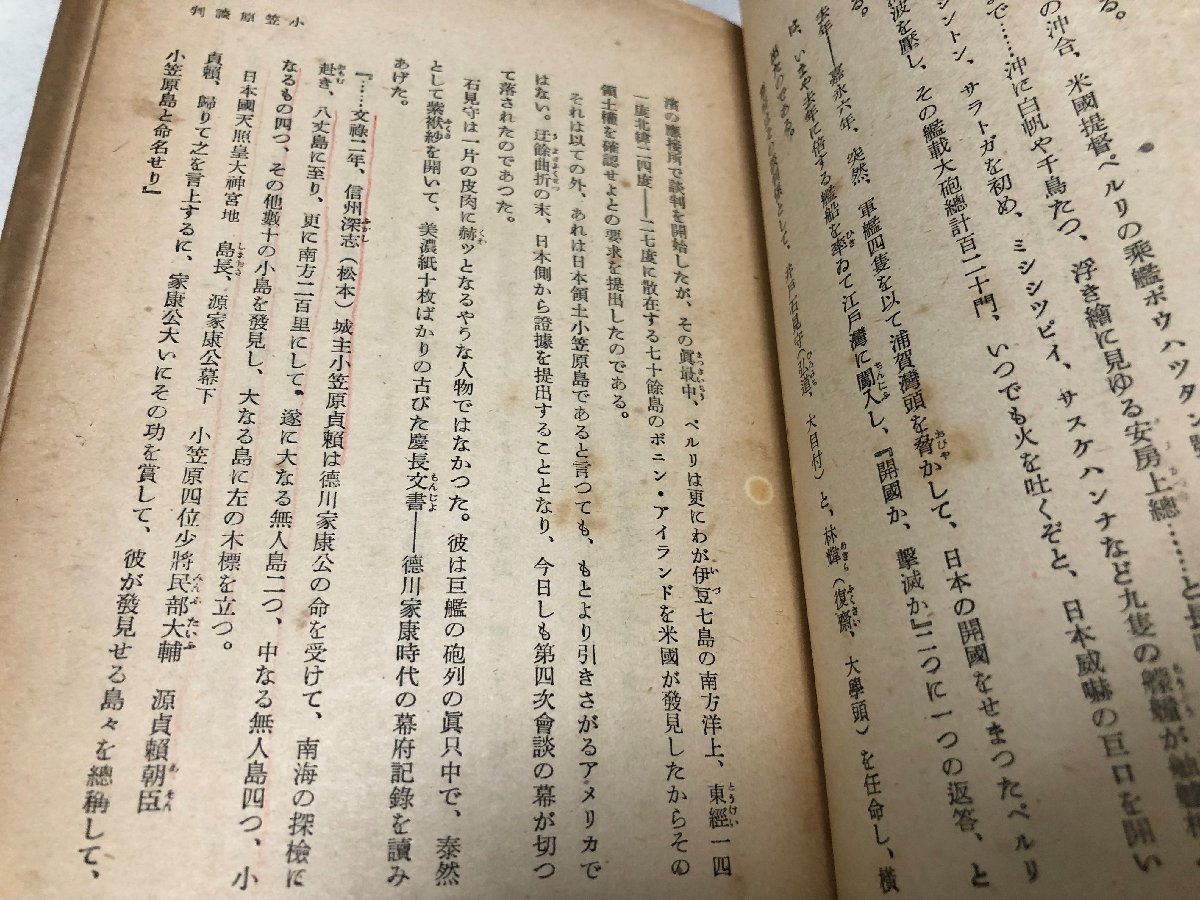 る。
の沖合、米國提督ペルリの乘艦ポウハツタン
で……沖に白帆や千鳥たつ、浮き繪に見ゆる安房上總……と
シントン、サラトガを初め、ミシシツピイ、サスケハンナなど九隻の艨艟が舳艫
波を壓し、その艦載大砲總計百二十門、いつでも火を吐くぞと、日本威嚇の巨口を開い
去年――嘉永六年、突然、軍艦四隻を以て浦賀灣頭を脅かして、日本の開國をせまつたペルリ
は、いまや去年に倍する艦船を率ゐて江戸灣に闖入し、『開國か、擊滅か』二つに一つの返答、と
として、井戸石見守(弘道、大目付)と、林煒(復齋、大學頭)を任命し、横
濱の應接所で談判を開始したが、その眞最中、ペルリは更にわが伊豆七島の南方洋上、東經一四
一度北緯二四度――二七度に散在する七十餘島のボニン・アイランドを米國が發見したからその
領土權を確認せよとの要求を提出したのである。
それは以ての外、あれは日本領土小笠原島であると言つても、もとより引きさがるアメリカで
はない。迂餘曲折の末、日本側から證據を提出することとなり、今日しも第四次會談の幕が切つ
て落されたのであつた。
石見守は一片の皮肉に赫ッとなるやうな人物ではなかつた。彼は巨艦の砲列の眞只中で、泰然
として紫袱紗を開いて、美濃紙十枚ばかりの古びた慶長文書――德川家康時代の幕府記錄を讀み
あげた。
『……文祿二年、信州深志(松本)城主小笠原貞賴は德川家康公の命を受けて、南海の探檢に
赴き、八丈島に至り、更に南方二百里にして、遂に大なる無人島二つ、中なる無人島四つ、小
なるもの四つ、その他數十の小島を發見し、大なる島に左の木標を立つ。
日本國天照皇大神宮地　島長、源家康公幕下　小笠原四位少將民部大輔　源貞賴朝臣
貞賴、歸りて之を言上するに、家康公大いにその功を賞して、彼が發見せる島々を總稱して、
小笠原島と命名せり』
小笠原談判